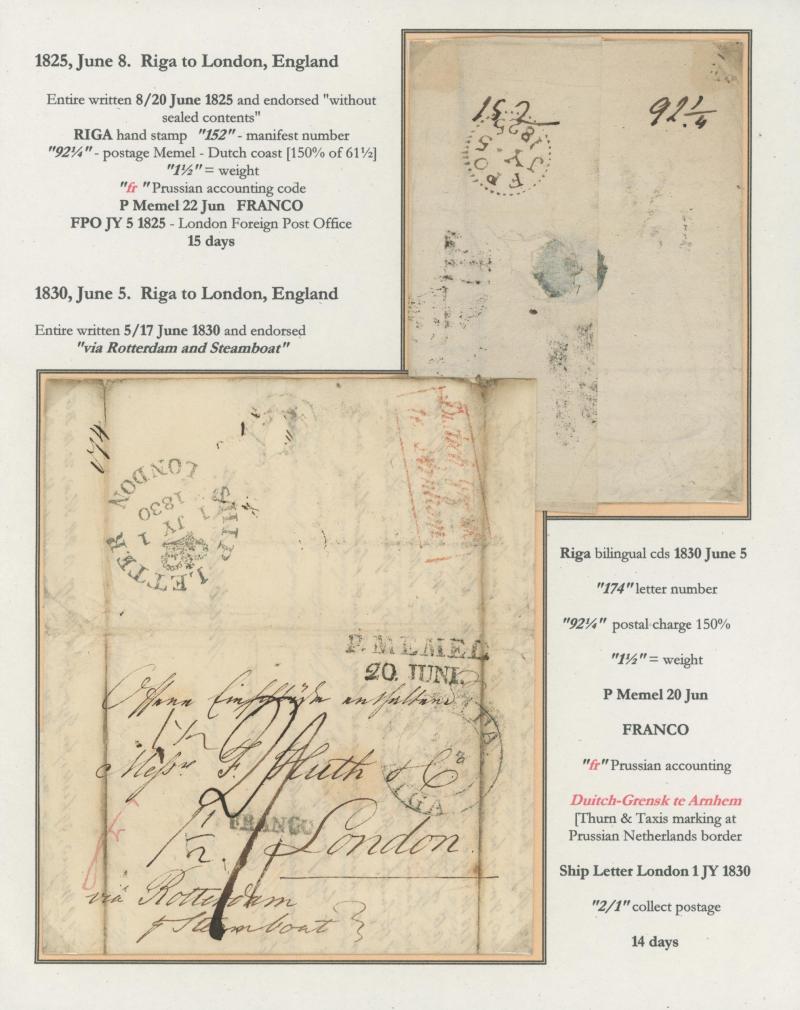 1825, June 8. Riga to London, England
Entire written 8/20 June 1825 and endorsed "without
sealed contents"
RIGA hand stamp "152" - manifest number
"92¼" - postage Memel - Dutch coast [150% of 61½]
"1½" = weight
"fr "Prussian accounting code
P Memel 22 Jun FRANCO
FPO JY 5 1825 - London Foreign Post Office
15 days
152
92 1/4
FPO
JY 5
1825
1830, June 5. Riga to London, England
Entire written 5/17 June 1830 and endorsed
"via Rotterdam and Steamboat"
174
SHIP LETTER LONDON
1 JY 1
1830
P. MEMEL
20. JUNI.
Offene
1½
Messrs F. Huth & Co
RIGA
FRANCO
1½
London
fr
via Rotterdam
p Steamboat
Riga bilingual cds 1830 June 5
"174" letter number
"92¼" postal charge 150%
"1½" = weight
P Memel 20 Jun
FRANCO
"fr" Prussian accounting
Duitch-Grensk te Arnhem
[Thurn & Taxis marking at
Prussian Netherlands border
Ship Letter London 1 JY 1830
"2/1" collect postage
14 days